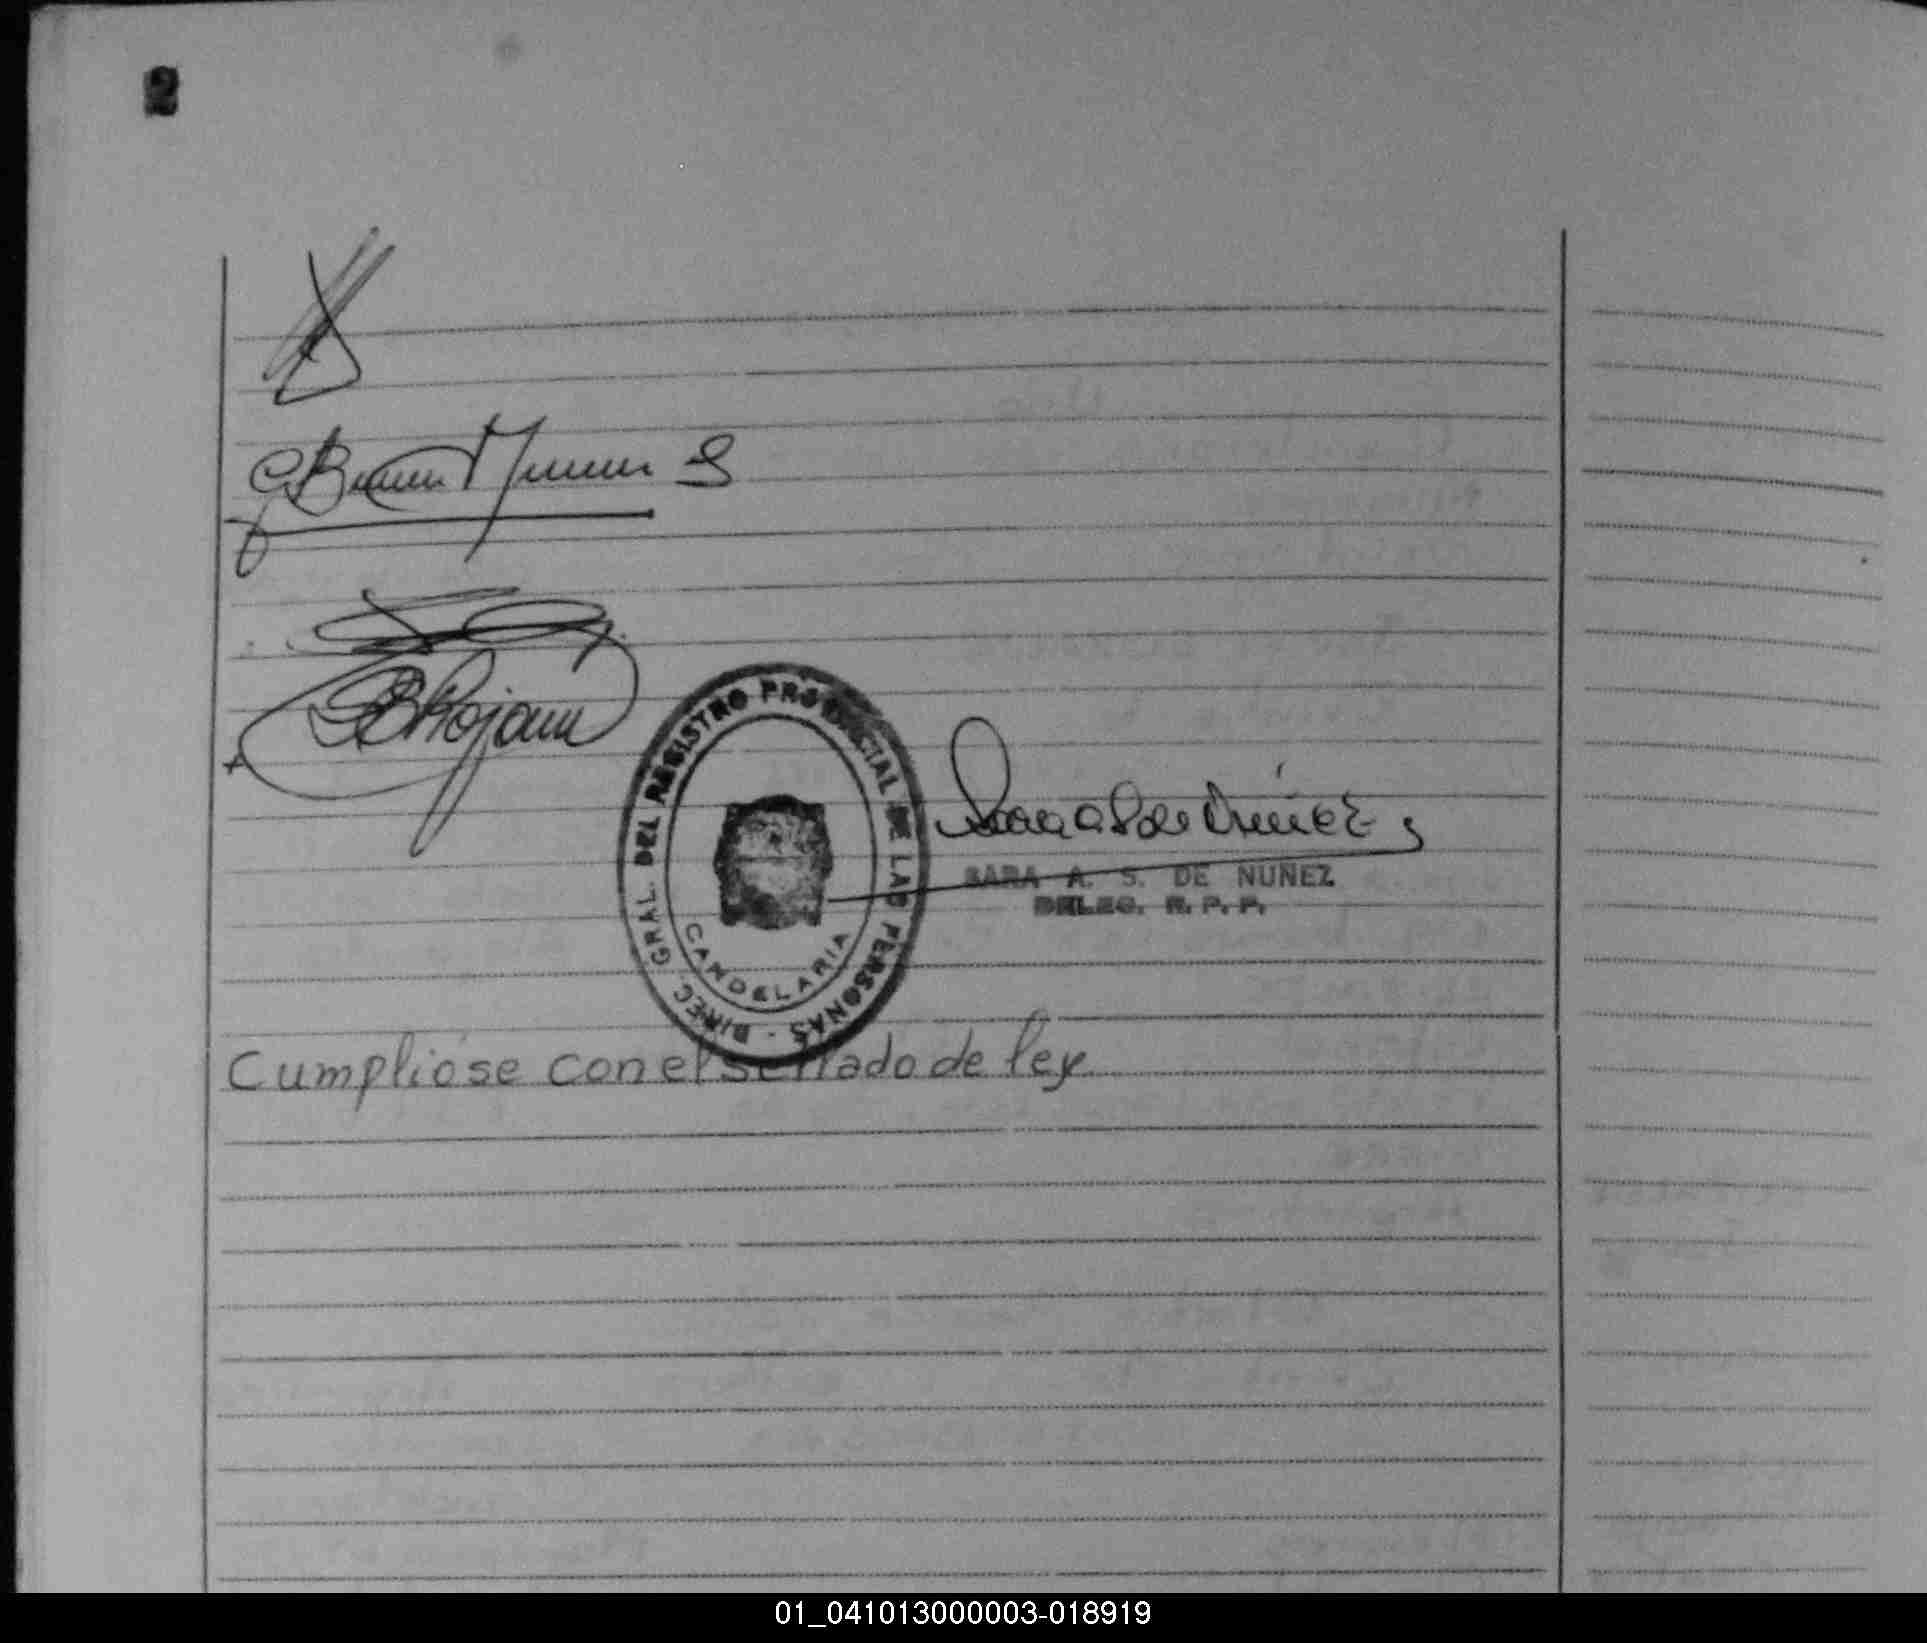 2
DIREC. GRAL. DEL REGISTRO PROVINCIAL DE LAS PERSONAS -
CANDELARIA
Sara A S de Nuñez
SARA A. S. DE NUÑEZ
DELEG. R. P. P.
Cumplióse con el sellado de ley
01_041013000003-018919